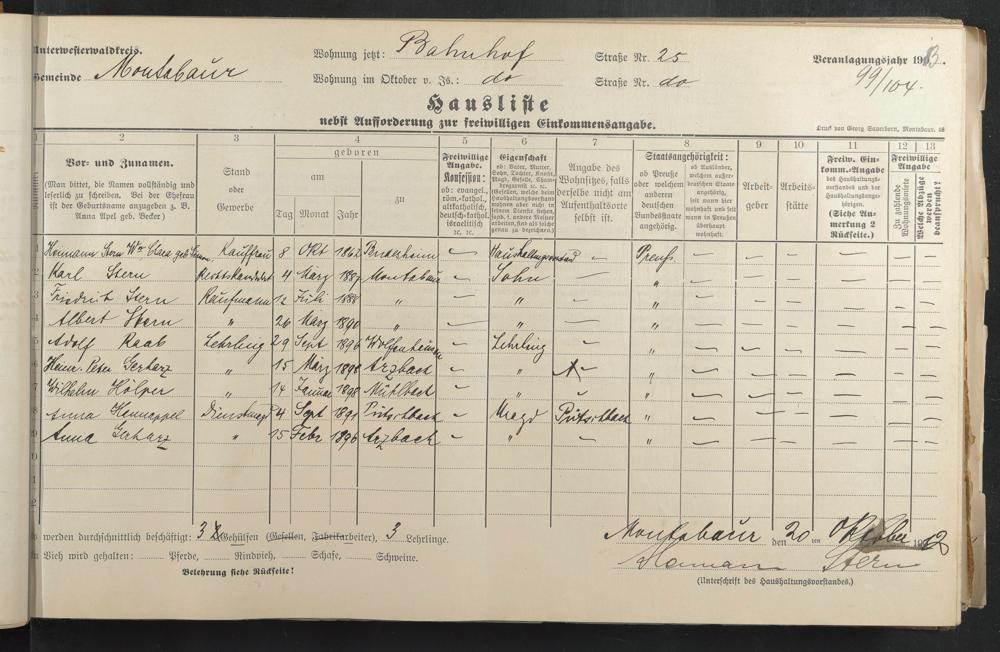 Unterwesterwaldkreis.
Wohnung jetzt: Bahnhof Straße Nr. 25
Veranlagungsjahr 1913.
Gemeinde Montabaur
Wohnung im Oktober v. Js.: do Straße Nr. do
99/104.
Hausliste
nebst Aufforderung zur freiwilligen Einkommensangabe.
Druck von Georg Sauerborn, Montabaur.
1 2 3 4 5 6 7 8 9 10 11 12 13
Nummer
Vor- und Zunamen.
(Man bittet, die Namen vollständig und
leserlich zu schreiben. Bei der Ehefrau
ist der Geburtsname anzugeben z. B.
Anna Apel geb. Becker)
Stand
oder
Gewerbe
geboren
am
zu
Tag Monat Jahr
Freiwillige
Angabe.
Konfession:
ob: evangel.,
röm.-kathol.,
altkatholisch,
deutsch-kathol.
israelitisch
rc. rc.
Eigenschaft
Angabe des
Wohnsitzes, falls
derselbe nicht am
Aufenthaltsorte
selbst ist.
Staatsangehörigkeit:
ob Preuße
oder welchem
anderen
deutschen
Bundesstaate
angehörig.
ob Ausländer,
welchem außer-
deutschen Staate
angehörig,
seit wann hier
wohnhaft und seit
wann in Preußen
überhaupt
wohnhaft.
Arbeit-
geber
Arbeits-
stätte
Freiw. Ein-
komm.-Angabe
des Haushaltungs-
vorstandes und der
Haushaltungsange-
hörigen.
(Siehe An-
merkung 2
Rückseite.)
Freiwillige
Angabe
Zu zahlende
Wohnungsmiete
Welche Abzüge
werden
beansprucht?
1 Hermann Stern Ww Clara geb. Kauffrau 8 Okt 1862 — Haushaltungsvorstand — Preuß. — — — — — —
2 Karl Stern Rechtskandidat 4 März 1887 Montabaur — Sohn — " — — — — — —
3 Friedrich Stern Kaufmann 12 Juli 1888 " — " — " — — — — — —
4 Albert Stern " 26 März 1890 " — " — " — — — — — —
5 Adolf Raab Lehrling 29 Sept 1896 — Lehrling — " — — — — — —
6 Heinr. Peter Gerharz " 15 März 1898 Arzbach — " " — — — — — —
7 Wilhelm Hölper " 14 Januar 1898 — " — " — — — — — —
8 Anna Hannappel Dienstmagd 4 Sept 1891 — Magd " — — — — — —
9 Anna Gerharz " 15 Febr 1896 Arzbach — " — " — — — — — —
Es werden durchschnittlich beschäftigt: 3 Gehülfen (Gesellen, Fabrikarbeiter), 3 Lehrlinge.
Montabaur den 20 ten Oktober 1912
An Vieh wird gehalten: — Pferde, — Rindvieh, — Schafe, — Schweine.
Hermann Stern
Belehrung siehe Rückseite!
(Unterschrift des Haushaltungsvorstandes.)